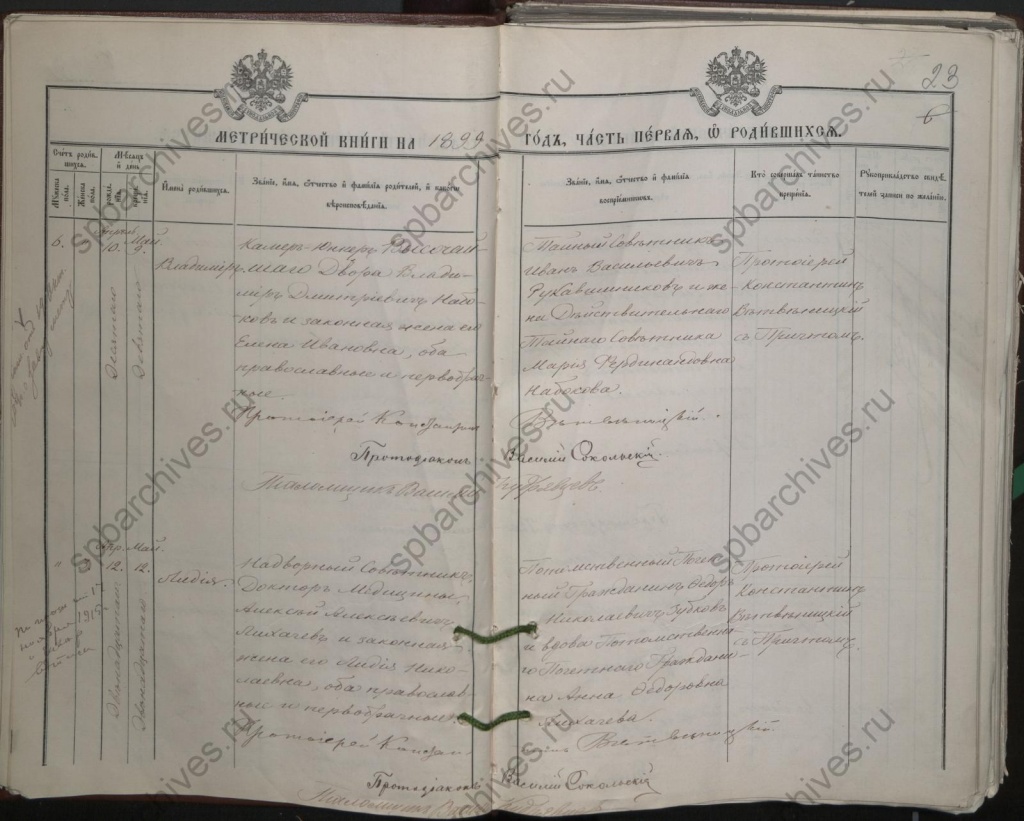 23
6
МЕТРИЧЕСКОЙ КНИГИ НА 1899 ГОДЪ, ЧАСТЬ ПЕРВАЯ, Ѡ РОДИВШИХСЯ.
Счетъ родившихся.
Мужеска пола.
Женска пола.
Мѣсяцъ и день
рожденія.
крещенія.
Имена родившихся.
Званіе, имя, отчество и фамилія родителей, и какого вѣроисповѣданія.
Званіе, имя, отчество и фамилія воспріемниковъ.
Кто совершалъ таинство крещенія.
Рукоприкладство свидѣтелей записи по желанію.
6.
Апрѣл. 10.
Десятаго
Май. 9.
Девятаго
Владиміръ
Камеръ-Юнкеръ Высочай-
шаго Двора Влади-
міръ Дмитріевичъ Набо-
ковъ и законная жена его
Елена Ивановна, оба
православные и первобрач-
ные.
Тайный Совѣтникъ
Иванъ Васильевичъ
Рукавишниковъ и же-
на Дѣйствительнаго
Тайнаго Совѣтника
Марія Фердинандовна
Набокова.
Протоіерей
Константинъ
Вѣтвѣницкій
съ Причтомъ.
Протоіерей Константинъ Вѣтвѣницкій.
Протодіаконъ Василій Сокольскій.
Псаломщикъ
"
Апр. 12.
Двѣнадцатаго
Май. 12.
Двѣнадцатаго
Лидія.
Надворный Совѣтникъ,
Докторъ Медицины,
Алексѣй Алексѣевичъ
Лихачевъ и законная
жена его Лидія Нико-
лаевна, оба православ-
ные и первобрачные.
Потомственный Почет-
ный Гражданинъ Ѳедоръ
Николаевичъ Зубковъ
и вдова Потомственна-
го Почетнаго Граждани-
на Анна Ѳедоровна
Лихачева.
Протоіерей
Константинъ
Вѣтвѣницкій
съ Причтомъ.
Протоіерей Константинъ Вѣтвѣницкій.
Протодіаконъ Василій Сокольскій
Псаломщикъ
spbarchives.ru
spbarchives.ru
spbarchives.ru
spbarchives.ru
spbarchives.ru
spbarchives.ru
spbarchives.ru
spbarchives.ru
spbarchives.ru